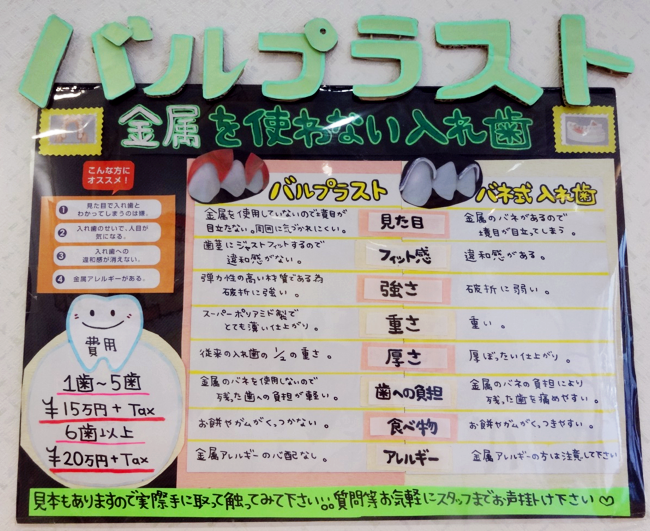 バルプラスト
金属を使わない入れ歯
こんな方に
オススメ！
1 見た目で入れ歯と
わかってしまうのは嫌。
2 入れ歯のせいで、人目が
気になる。
3 入れ歯への
違和感が消えない。
4 金属アレルギーがある。
費用
1歯〜5歯
¥15万円+Tax
6歯以上
¥20万円+Tax
バルプラスト
バネ式入れ歯
金属を使用していないので境目が
目立たない。周囲に気づかれにくい。
見た目
金属のバネがあるので
境目が目立ってしまう。
歯茎にジャストフィットするので
違和感がない。
フィット感
違和感がある。
弾力性の高い材質である為
破折に強い。
強さ
破折に弱い。
スーパーポリアミド製で
とても薄い仕上がり。
重さ
重い。
従来の入れ歯の1/2の重さ。
厚さ
厚ぼったい仕上がり。
金属のバネを使用しないので
残った歯への負担が軽い。
歯への負担
金属のバネの負担により
残った歯を痛めやすい。
お餅やガムがくっつかない。
食べ物
お餅やガムがくっつきやすい。
金属アレルギーの心配なし。
アレルギー
金属アレルギーの方は注意して下さい
見本もありますので実際手に取って触ってみて下さい!!質問等お気軽にスタッフまでお声掛け下さい♡